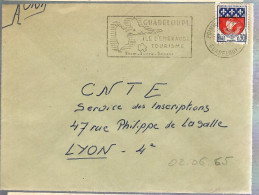 Avion
GUADELOUPE
ILE D'EMERAUDE
TOURISME
CNTE
Service des Inscriptions
47 rue Philippe de Lasalle
LYON - 4e
02.06.65